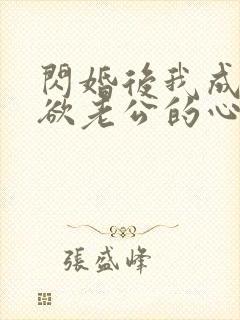 閃婚後我成
欲老公的心
張盛峰